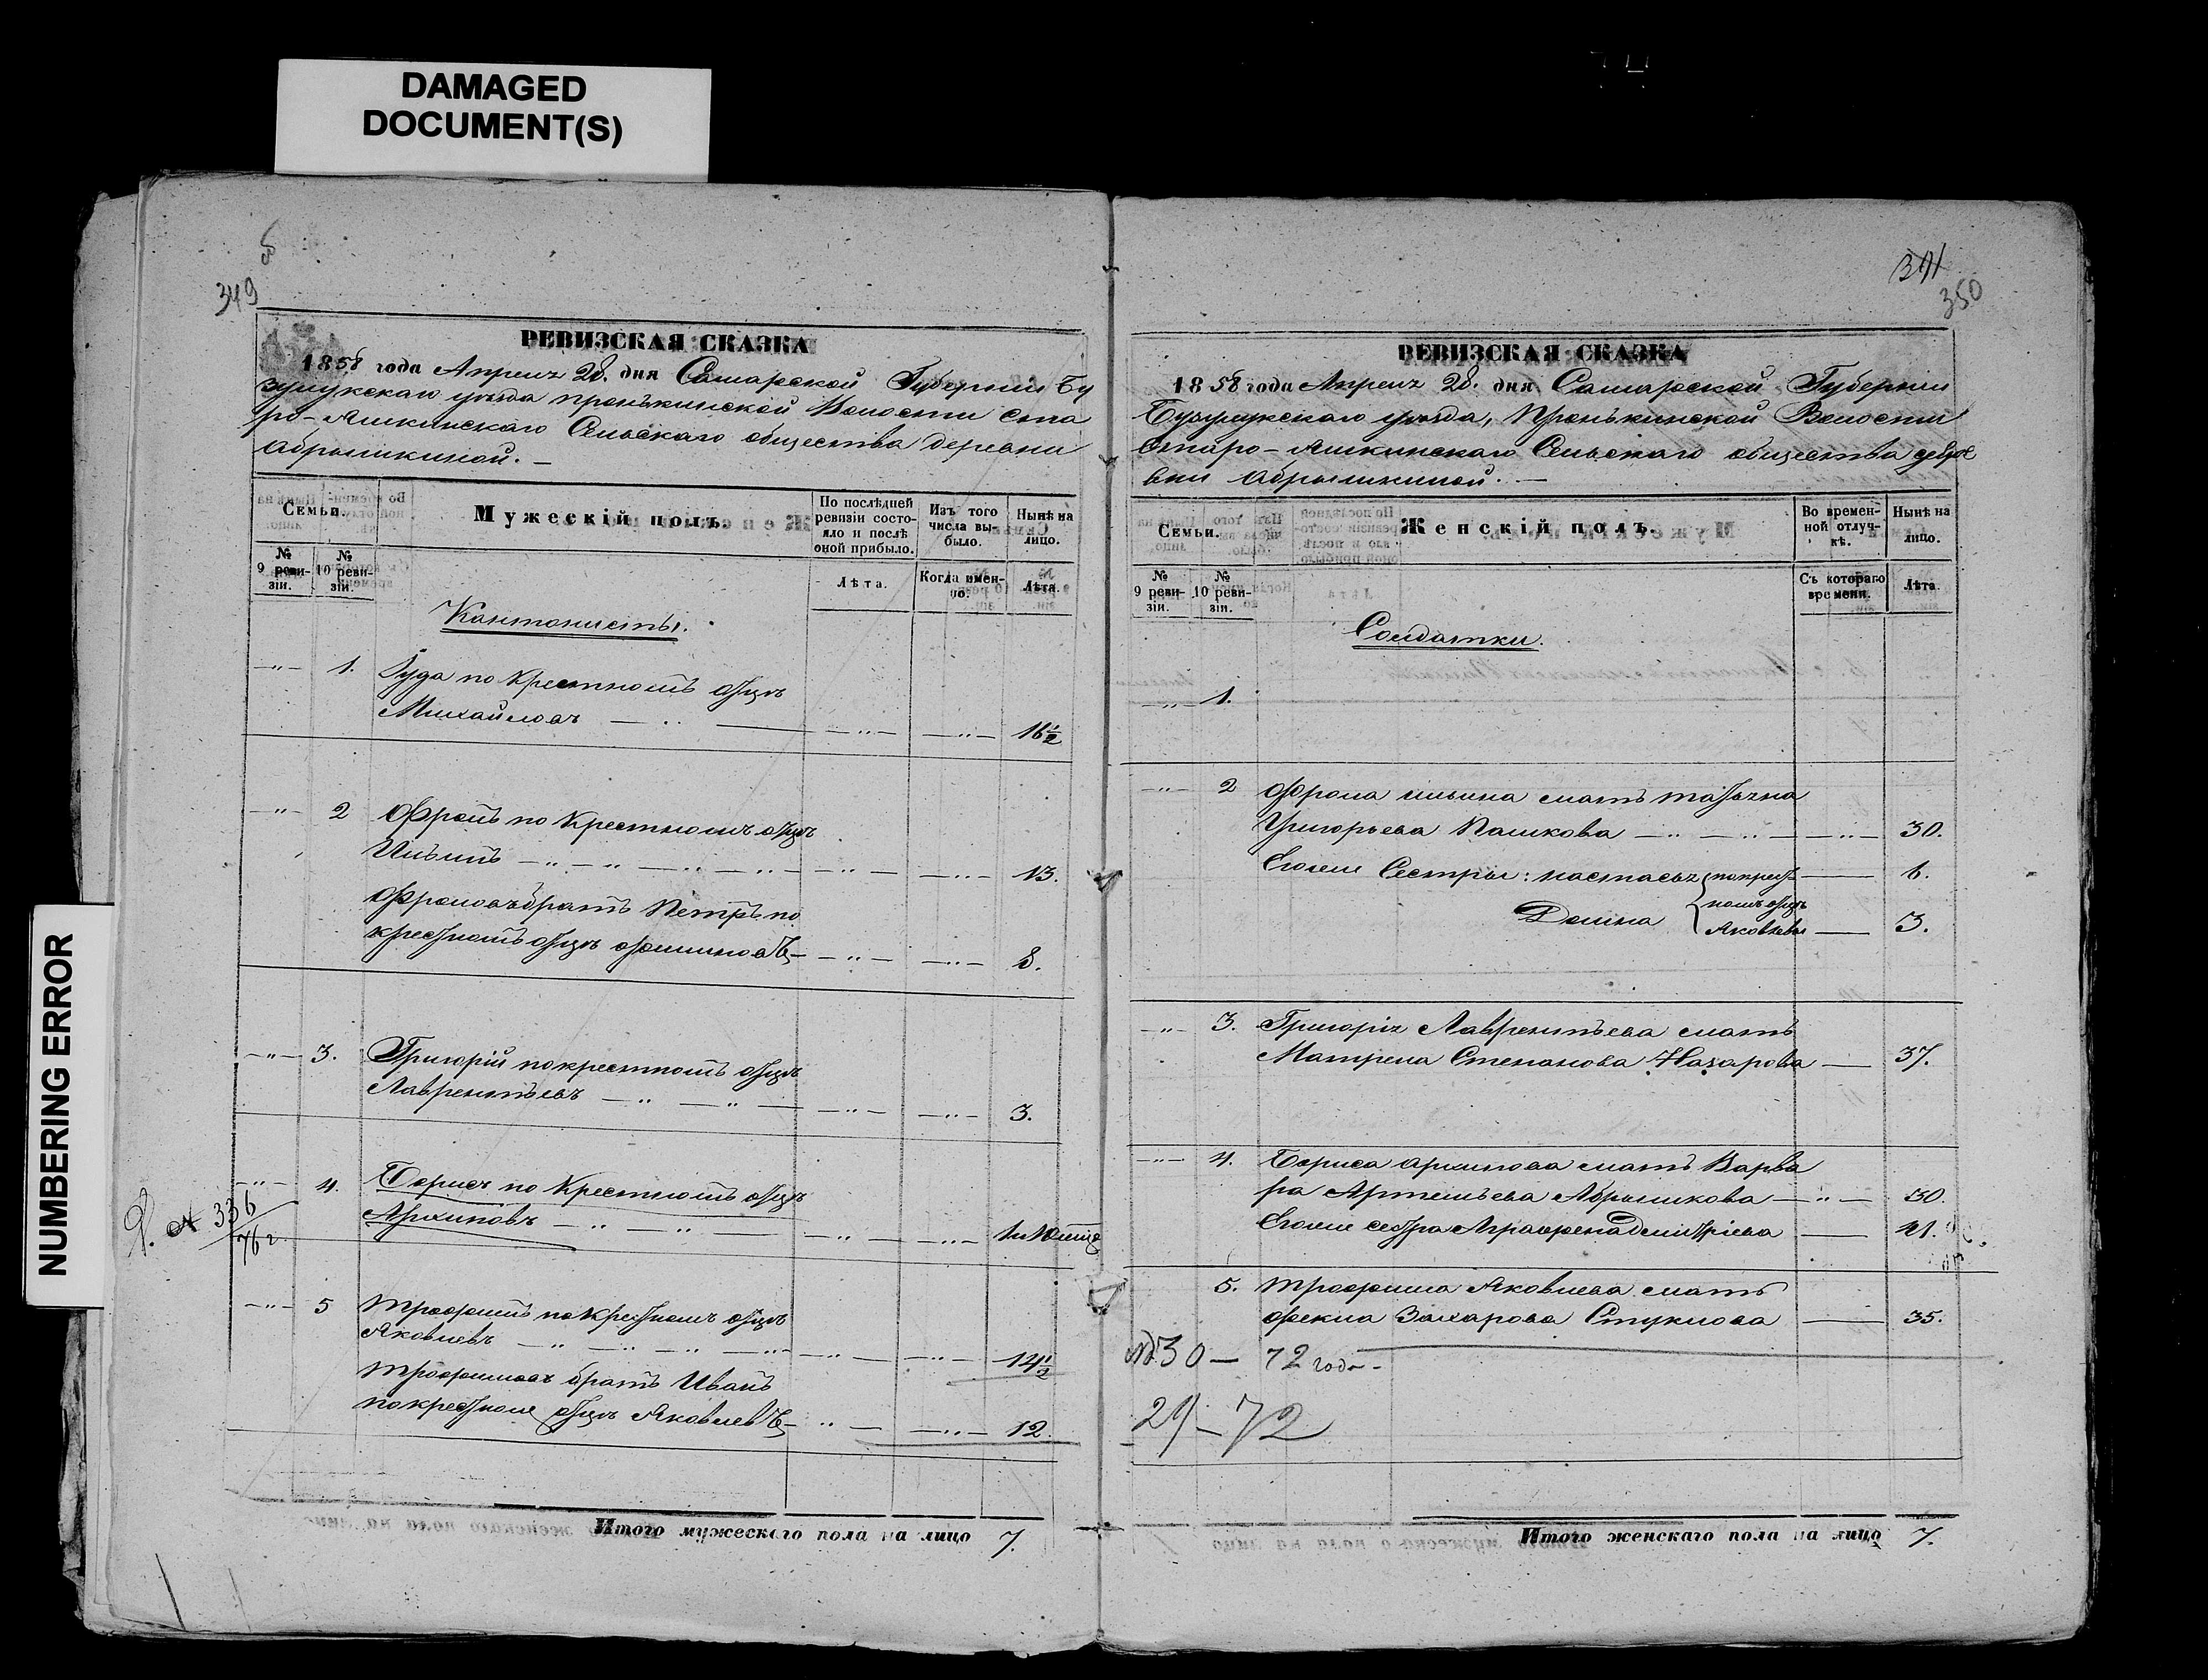 DAMAGED
DOCUMENT(S)
NUMBERING ERROR
349
РЕВИЗСКАЯ СКАЗКА
1858 года Апреля 28. дня Самарской Губернiи Бу
зулукскаго уѣзда пронькинской Волости Ста
ро-Ашкинскаго Сельскаго общества деревни
Абрышкиной. —
Семьи.
№ 9 ревизiи.
№ 10 ревизiи.
Мужескiй полъ.
По послѣдней ревизiи состояло и послѣ оной прибыло.
Лѣта.
Изъ того числа выбыло.
Когда именно.
Нынѣ на лицо.
Лѣта.
Кантонисты.
—"— 1. Iуда по крестномъ отцѣ
Михайловъ —"— —"— —"— 16½
—"— 2 Фролъ по крестномъ отцѣ
Ильинъ —"— —"— —"— 13.
Фроловъ братъ Петръ по
крестномъ отцѣ —"— —"— 8.
—"— 3. Григорiй по крестномъ отцѣ
Лаврентьевъ —"— —"— —"— 3.
—"— 4. Борисъ по Крестномъ отцѣ
Архиповъ —"— —"— —"—
336
76 г.
—"— 5 Трофимъ по крестномъ отцѣ
Яковлевъ —"— —"— —"— 14½
Трофимовъ братъ Иванъ
по крестномъ отцѣ Яковлевъ —"— —"— 12.
Итого мужескаго пола на лицо 7.
341
350
РЕВИЗСКАЯ СКАЗКА
1858 года Апреля 28. дня Самарской Губернiи
Бузулукскаго уѣзда, Пронькинской Волости
Старо-Ашкинскаго Сельскаго общества дере
вни Абрышкиной. —
Семьи.
№ 9 ревизiи.
№ 10 ревизiи.
Женскiй полъ.
Во временной отлучкѣ.
Съ котораго времени.
Нынѣ на лицо.
Лѣта.
Солдатки.
—"— 1.
—"— 2 Фрола ильина мать татьяна
Григорьева Пашкова —"— —"— 30.
Его же Сестры: настасья { по крест — 6.
номъ отцѣ
Домна Яковлевы — 3.
—"— 3. Григорiя Лаврентьева мать
Матрена Степанова Назарова — 37.
—"— 4. Бориса архипова мать Варва
ра Артемьева Абрышкова —"— 30.
Его же сестра Аграфена Дмитрiева —
5. трофима Яковлева мать
фекла Захарова Стуклова — 35.
№ 30 — 72 года
29 — 72
Итого женскаго пола на лицо 7.